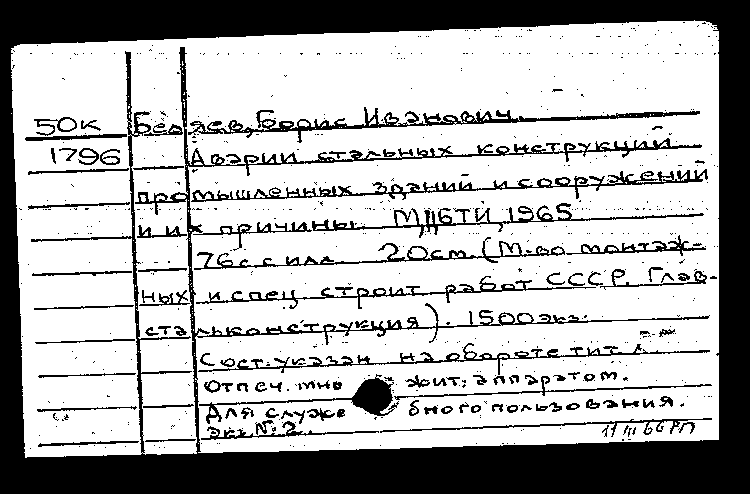 50к Беляев, Борис Иванович.
1796 Аварии стальных конструкций
промышленных зданий и сооружений
и их причины. М., ЦБТИ, 1965
76с с илл. 20см. (М-во монтаж-
ных и спец строит работ СССР. Глав-
стальконструкция). 1500экз.
Сост. указан на обороте тит. л.
Отпеч. множит. аппаратом.
Для служебного пользования.
Экз. №: 2.
11 III 66 РП